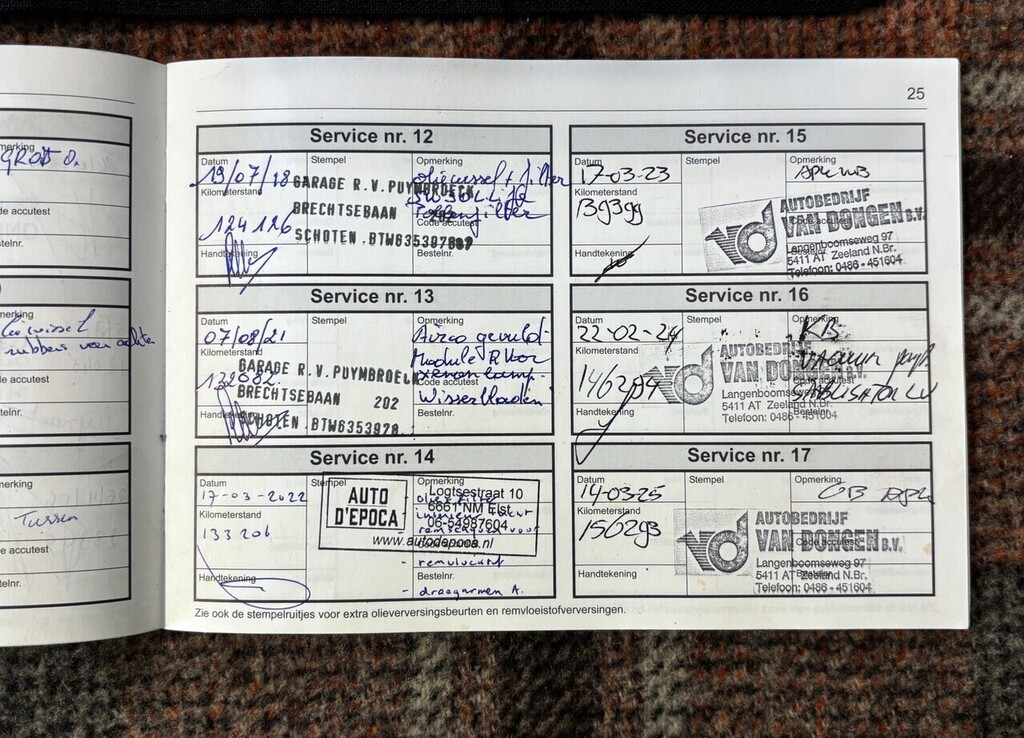 25
GROTE O.
de accutest
telnr.
Tussen
e accutest
telnr.
Service nr. 12
Datum
Stempel
Opmerking
19/07/18
oliewissel + filter
Kilometerstand
GARAGE R.V.PUYMBROECK
5W30 LL
Pollenfilter
BRECHTSEBAAN 202
Code accutest
124126
SCHOTEN .BTW6353978
Bestelnr.
Handtekening
Service nr. 13
Datum
Stempel
Opmerking
07/08/21
Airco gevuld
Kilometerstand
Module R Voor
GARAGE R.V.PUYMBROECK
xenon lamp
132082
BRECHTSEBAAN 202
Code accutest
Wisserbladen
SCHOTEN .BTW6353978.
Bestelnr.
Handtekening
Service nr. 14
Datum
Stempel
Opmerking
17-03-2022
AUTO
D'EPOCA
Logtsestraat 10
6661 NM Elst
06-54987604
www.autodepoca.nl
Kilometerstand
133206
Handtekening
Bestelnr.
- draagarmen A.
Service nr. 15
Datum
Stempel
Opmerking
17-03-23
APK
Kilometerstand
139399
AUTOBEDRIJF
VAN DONGEN B.V.
Langenboomseweg 97
5411 AT Zeeland N.Br.
Telefoon: 0486 - 451604
Handtekening
Service nr. 16
Datum
Stempel
Opmerking
22-02-24
KB
Kilometerstand
AUTOBEDRIJF
VAN DONGEN B.V.
146294
Langenboomseweg 97
5411 AT Zeeland N.Br.
Telefoon: 0486 - 451604
Handtekening
Bestelnr.
Service nr. 17
Datum
Stempel
Opmerking
14-03-25
APK
Kilometerstand
156293
AUTOBEDRIJF
VAN DONGEN B.V.
Code accutest
Langenboomseweg 97
5411 AT Zeeland N.Br.
Telefoon: 0486 - 451604
Handtekening
Bestelnr.
Zie ook de stempelruitjes voor extra olieverversingsbeurten en remvloeistofverversingen.